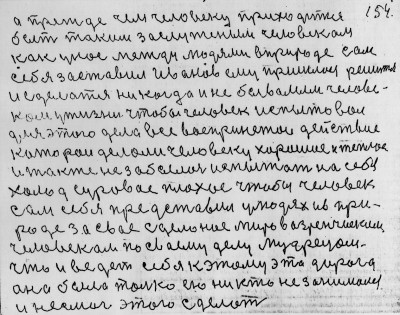 154.
а прежде чем человеку приходится
быть таким заслуженым человекам
как умное между людями в природе сам
себя заставил Иванов ему пришлось решится
и сделатся никогда и не бывалым челове-
ком у жизни чтобы человек испытовал
для этого дела все воспринетое действие
каторои делоли человеку хорошие и теплое
и такте не забывал испытат на себе
холод суровае плохое чтобы человек
сам себя предетавил у людях и в при-
роде за свае сделоное мировозренчиским
человекам по сваему делу мудрецом.
что и ведет себя к этому эта дорога
ана была толко ею никто не занималса
и не смог этого сделат